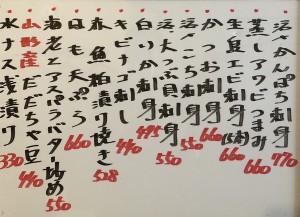 活〆かんぱち刺身 770
蒸しアワビつまみ 660
生員エビ刺身(5本) 660
かつお刺身 660
活、大つぶ貝刺身 550
白いか刺身 495
キビナゴ刺し 440
赤魚粕漬け焼き 528
はも天ぷら 660
海老とアスパラバター炒め 550
山形産だだちゃ豆 440
水ナス浅漬け 330